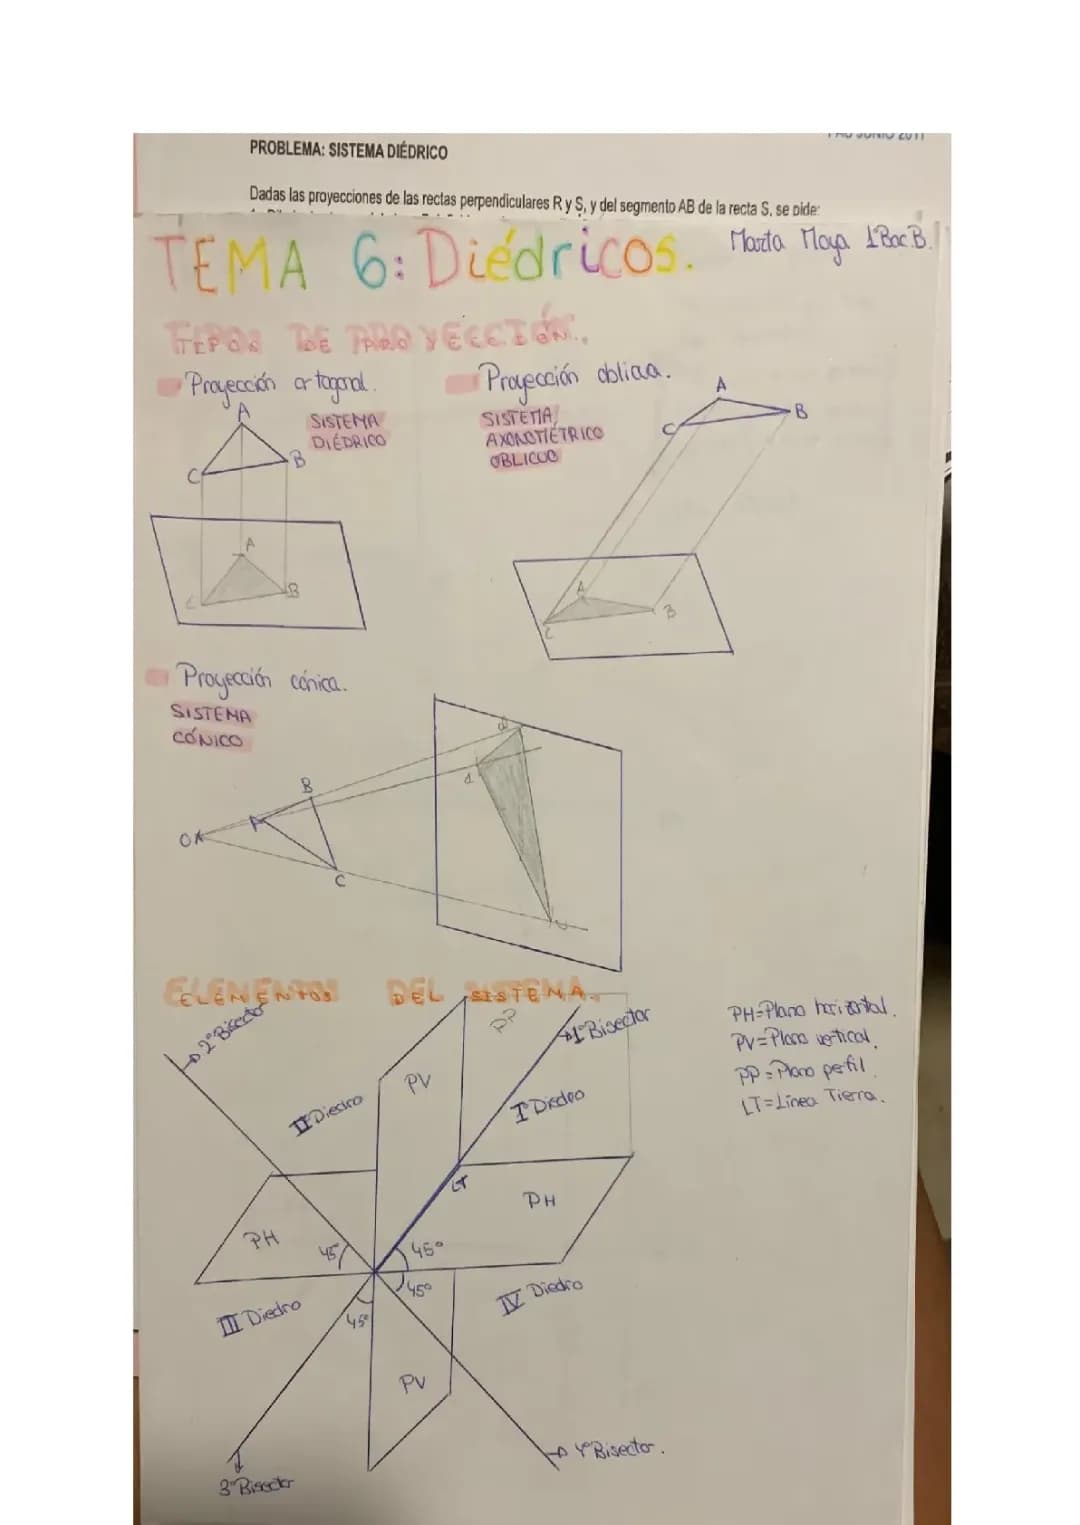 PAU JUNIO 2011
PROBLEMA: SISTEMA DIÉDRICO
Dadas las proyecciones de las rectas perpendiculares R y S, y del segmento AB de la recta S, se pide:
TEMA 6: Diédricos.
Marta Moya 1ºBac B.
TIPOS DE PROYECCIÓN.
Proyección ortogonal.
SISTEMA
DIÉDRICO
A
C
B
A
C
B
Proyección oblicua.
SISTEMA
AXONOMÉTRICO
OBLICUO
A
B
C
A
B
C
Proyección cónica.
SISTEMA
CÓNICO
O
A
B
C
ELEMENTOS DEL SISTEMA.
2ºBisector
PP
1ºBisector
PH=Plano horizontal.
PV=Plano vertical.
PP=Plano perfil.
LT=Línea Tierra.
PV
II Diedro
I Diedro
LT
PH
PH
45º
45º
45º
45º
III Diedro
IV Diedro
PV
4ºBisector.
3ºBisector